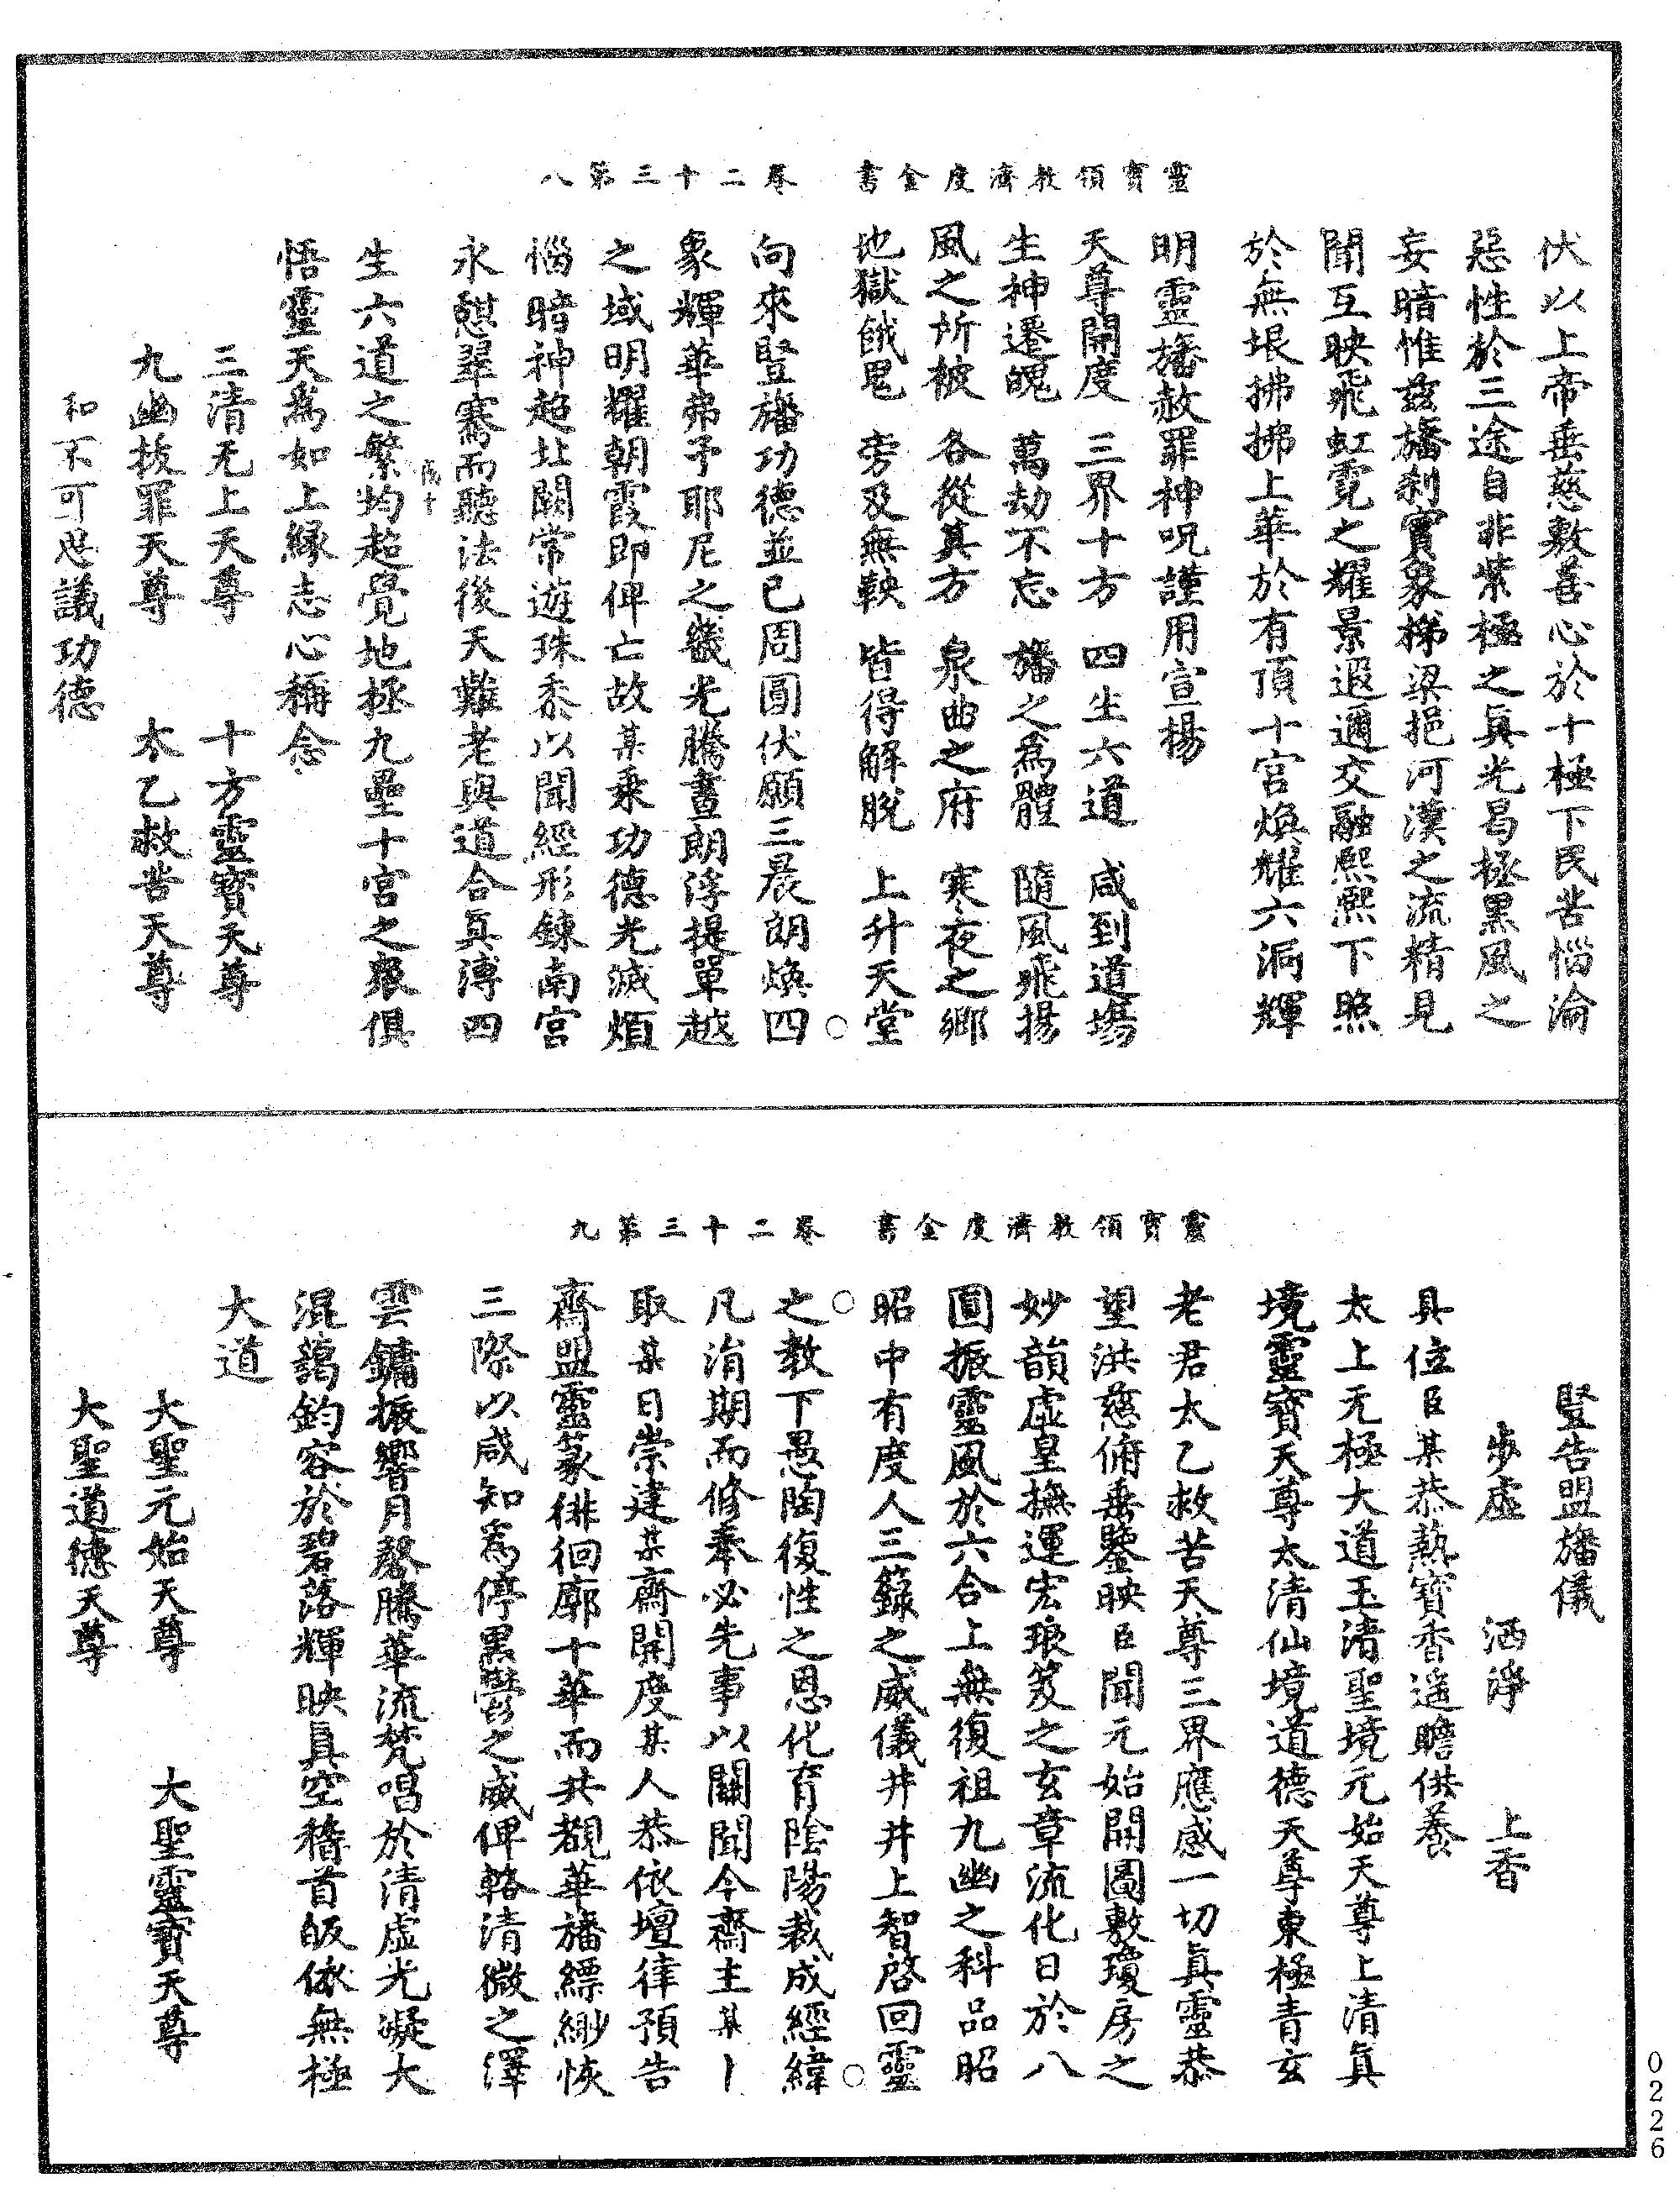 靈寶領教濟度金書　卷二十三第八
伏以上帝垂慈敷善心於十極下民苦惱淪
惡性於三途自非紫極之眞光曷拯黑風之
妄暗惟兹旛刹實象梯梁挹河漢之流精見
聞互映飛虹霓之耀景遐邇交融熙熙下照
於無垠拂拂上華於有頂十宮煥耀六洞輝
明靈旛赦罪神呪謹用宣揚
天尊開度　三界十方　四生六道　咸到道場
生神遷魄　萬劫不忘　旛之爲體　隨風飛揚
風之所被　各從其方　泉曲之府　寒夜之鄉
地獄餓鬼　旁及無鞅　皆得解脫　上升天堂
向來竪旛功德並已周圓伏願三晨朗煥四
象輝華弗予耶尼之畿光騰晝朗浮提單越
之域明耀朝霞即俾亡故某乘功德光滅煩
惱暗神超北闕常遊珠黍以聞經形鍊南宮
永憩翠騫而聽法後天難老與道合眞溥四
生六道之繁均超覺地拯九壘十宮之衆俱
悟靈天爲如上緣志心稱念
三清无上天尊　十方靈寶天尊
九幽拔罪天尊　太乙救苦天尊
和不可思議功德
靈寶領教濟度金書　卷二十三第九
竪告盟旛儀
步虛　洒淨　上香
具位臣某恭熱寶香遥瞻供養
太上无極大道玉清聖境元始天尊上清眞
境靈寶天尊太清仙境道德天尊東極青玄
老君太乙救苦天尊三界應感一切眞靈恭
望洪慈俯垂鑒映臣聞元始開圖敷瓊房之
妙韻虛皇撫運宏琅笈之玄章流化日於八
圓振靈風於六合上無復祖九幽之科品昭
昭中有度人三籙之威儀井井上智啓回靈
之教下愚陶復性之恩化育陰陽裁成經緯
凡涓期而修奉必先事以關聞今齋主某｜
取某日崇建某齋開度某人恭依壇律預告
齋盟靈篆徘徊廓十華而共覩華旛縹緲恢
三際以咸知爲停黑欝之威俾輅清微之澤
雲鏞振響月磬騰華流梵唱於清虛光凝大
混藹鈞容於碧落輝映眞空稽首皈依無極
大道
大聖元始天尊　大聖靈寶天尊
大聖道德天尊
0226